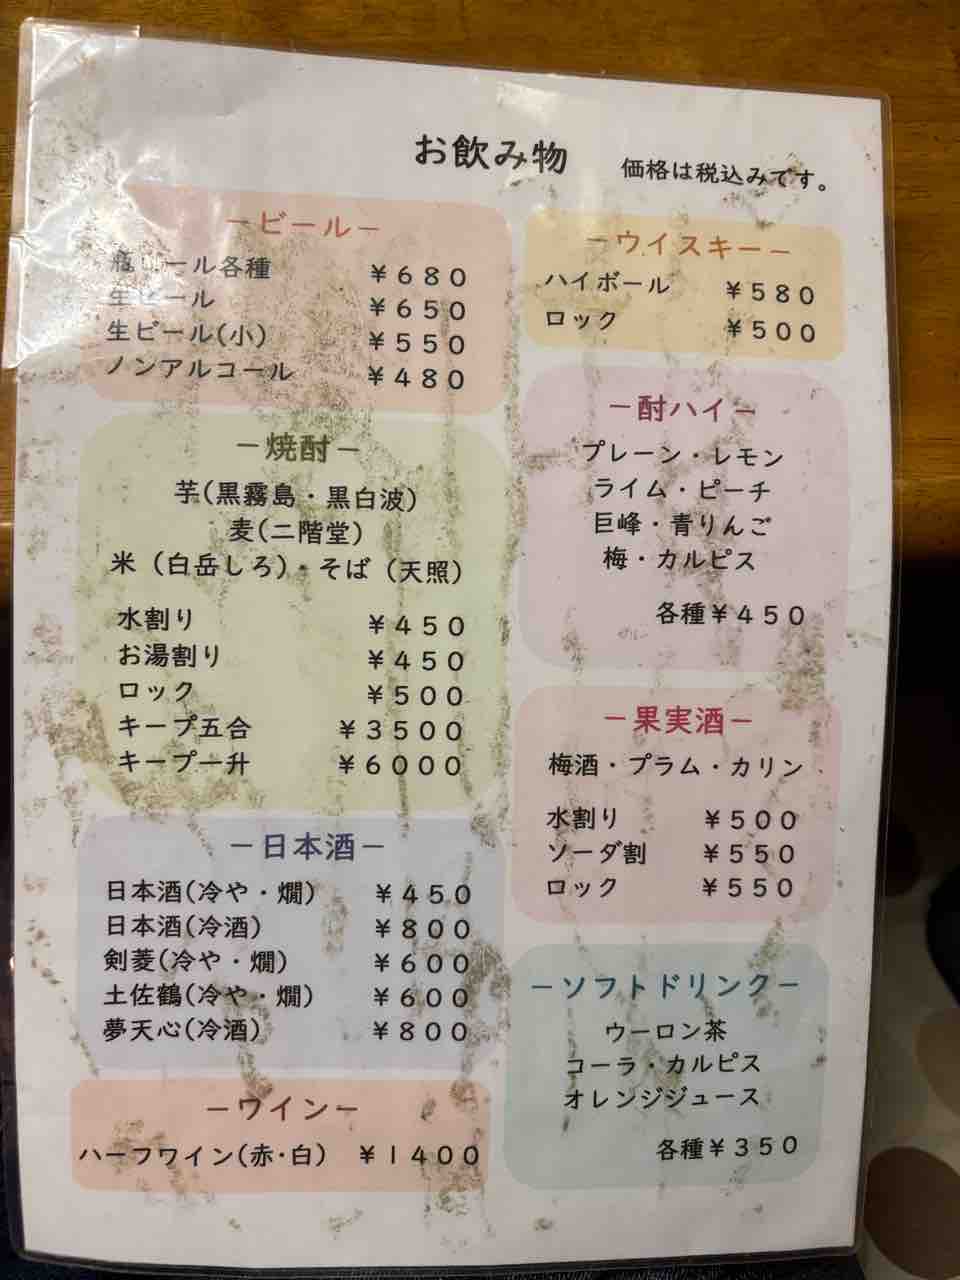 お飲み物
価格は税込みです。
ービールー
瓶ビール各種 ￥680
生ビール ￥650
生ビール(小) ￥550
ノンアルコール ￥480
ー焼酎ー
芋(黒霧島・黒白波)
麦(二階堂)
米 (白岳しろ)・そば (天照)
水割り ￥450
お湯割り ￥450
ロック ￥500
キープ五合 ￥3500
キープ一升 ￥6000
ー日本酒ー
日本酒(冷や・燗) ￥450
日本酒(冷酒) ￥800
剣菱(冷や・燗) ￥600
土佐鶴(冷や・燗) ￥600
夢天心(冷酒) ￥800
ーワインー
ハーフワイン(赤・白) ￥1400
ーウイスキーー
ハイボール ￥580
ロック ￥500
ー酎ハイー
プレーン・レモン
ライム・ピーチ
巨峰・青りんご
梅・カルピス
各種￥450
ー果実酒ー
梅酒・プラム・カリン
水割り ￥500
ソーダ割 ￥550
ロック ￥550
ーソフトドリンクー
ウーロン茶
コーラ・カルピス
オレンジジュース
各種￥350